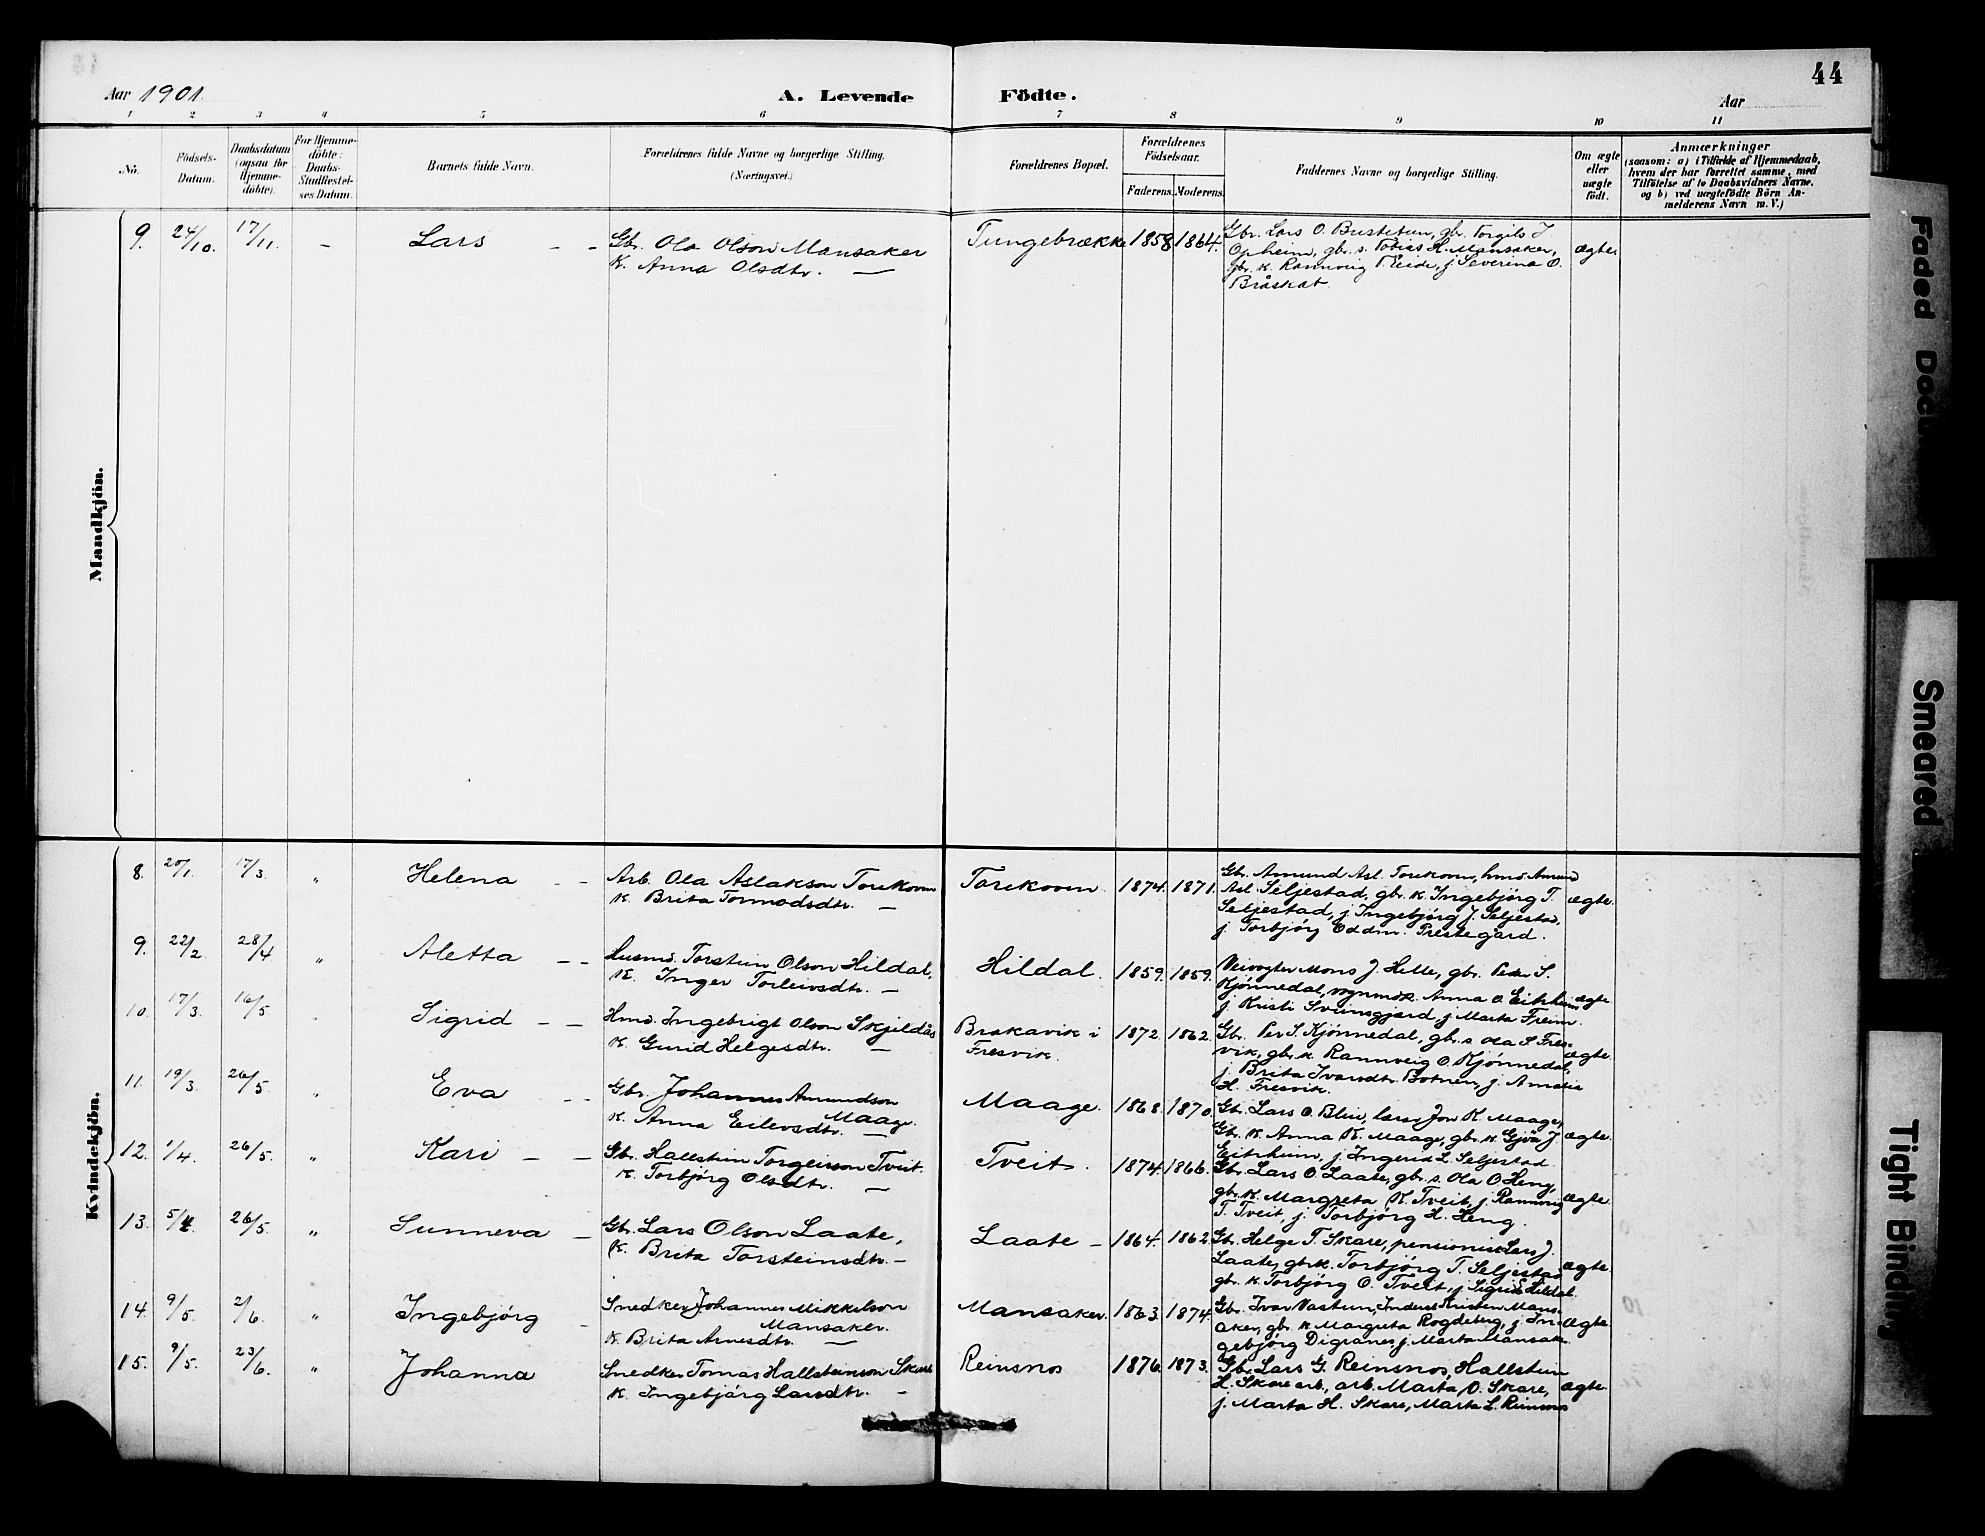 44
Aar 1901.
A. Levende Födte.
Aar
1 2 3 4 5 6 7 8 9 10 11
No.
Födsels-
Datum.
Daabsdatum
(ogsaa for
Hjemme-
döbte).
For Hjemme-
döbte:
Daabs-
Stadfæstel-
ses Datum.
Barnets fulde Navn.
Forældrenes fulde Navne og borgerlige Stilling.
(Næringsvei.)
Forældrenes Bopæl.
Forældrenes
Födselsaar.
Faderens. Moderens.
Faddernes Navne og borgerlige Stilling.
Om ægte
eller
uægte
födt.
Anmærkninger
(saasom: a) i Tilfælde af Hjemmedaab,
hvem der har forrettet samme, med
Tilföielse af to Daabsvidners Navne,
og b) ved uægtefödte Börn An-
melderens Navn m. V.)
Mandkjön.
9. 24/10. 17/11. – Lars – –
Gbr. Ola Olson Mansaker
K. Anna Olsdtr. —
Tungebrække 1858 1864.
Gbr. Lars O. Bustetun, gbr. Torgils J
Opheim, gbr. s. Tobias H. Mansaker,
gbr. k. Rannveig T. Eide, j. Severina O.
Bråskat.
ægte.
Kvindekjön.
8. 20/1. 17/3. " Helena – –
Arb. Ola Aslakson Torekoven
K. Brita Tormodsdtr. —
Torekoven 1874. 1871.
Gbr. Amund Asl. Torekoven, hmd
Asl. Seljestad, gbr. k. Ingebjørg T.
Seljestad, j. Ingebjørg J. Seljestad,
j. Torbjörg Eddm. Prestegard.
ægte.
9. 22/2 28/4 " Aletta – –
Husmd. Torstein Olson Hildal,
K. Inger Torleivsdtr. —
Hildal. 1859. 1859.
Veivogter Mons J. Helle, gbr. Peder S.
Kjönnedal, Anna O. Eitrheim
j. Kristi Sveinsgjerd, j. Marta Freim.
ægte
10. 17/3. 16/5. Sigrid – –
Hmd. Ingebrigt Olson Skjeldås
K. Gurid Helgesdtr. —
Brakavik i
Fresvik.
1872. 1862.
Gbr. Per S. Kjönnedal, gbr. s Ola S Fres-
vik, gbr. k. Rannveig O. Kjönnedal,
j. Brita Ivarsdtr. Botnen, j. Amalia
H. Fresvik.
ægte
11. 19/3. 26/5. " Eva – –
Gbr. Johannes Amundson
Maage.
K. Anna Eilevsdtr. —
Maage. 1868. 1870.
Gbr. Lars O. Blie, Jon K. Maage,
Gbr. k. Anna K. Maage, gbr. k. Gjöa J
Eitrheim, j. Ingerid L. Seljestad.
ægte.
12. 1/4. 26/5. " Kari – –
Gbr. Hallstein Torgeirson Tveit.
K. Torbjörg Olsdtr. —
Tveit. 1874. 1866.
Gbr. Lars O. Laate, gbr. s. Ola O Heng,
gbr. k. Margreta K. Tveit, j. Rannveig
T. Tveit, j. Torbjörg H. Heng.
ægte
13. 5/4 26/5. " Sunneva –
Gbr. Lars Olson Laate,
K. Brita Torsteinsdtr. –
Laate – 1864. 1862.
Gbr. Helge T. Skare, pensionist Lars J.
Laate, gbr. k. Torbjörg T. Seljestad
gbr. k. Torbjörg O. Tveit, j. Sigrid S. Hildal.
ægte.
14. 9/5. 2/6. " Ingebjörg –
Snedker Johannes Mikkelson
Mansaker.
K. Brita Arnesdtr. —
Mansaker. 1863. 1874.
Gbr. Ivar Vastun, Kristen Mans-
aker, gbr. k Margreta Rogdeberg, j. In-
gebjörg Digranes, j. Marta Mansaker
ægte
15. 9/5. 23/6. " Johanna
Snedker Tomas Hallsteinson Skare
K. Ingebjörg Larsdtr. –
Reinsnos 1876. 1873.
Gbr. Lars G. Reinsnos, Hallstein
H. Skare arb., arb. Marta O. Skare,
j. Marta H. Skare, Marta L. Reinsnos
ægte.
Faded
Smeared
Tight Binding